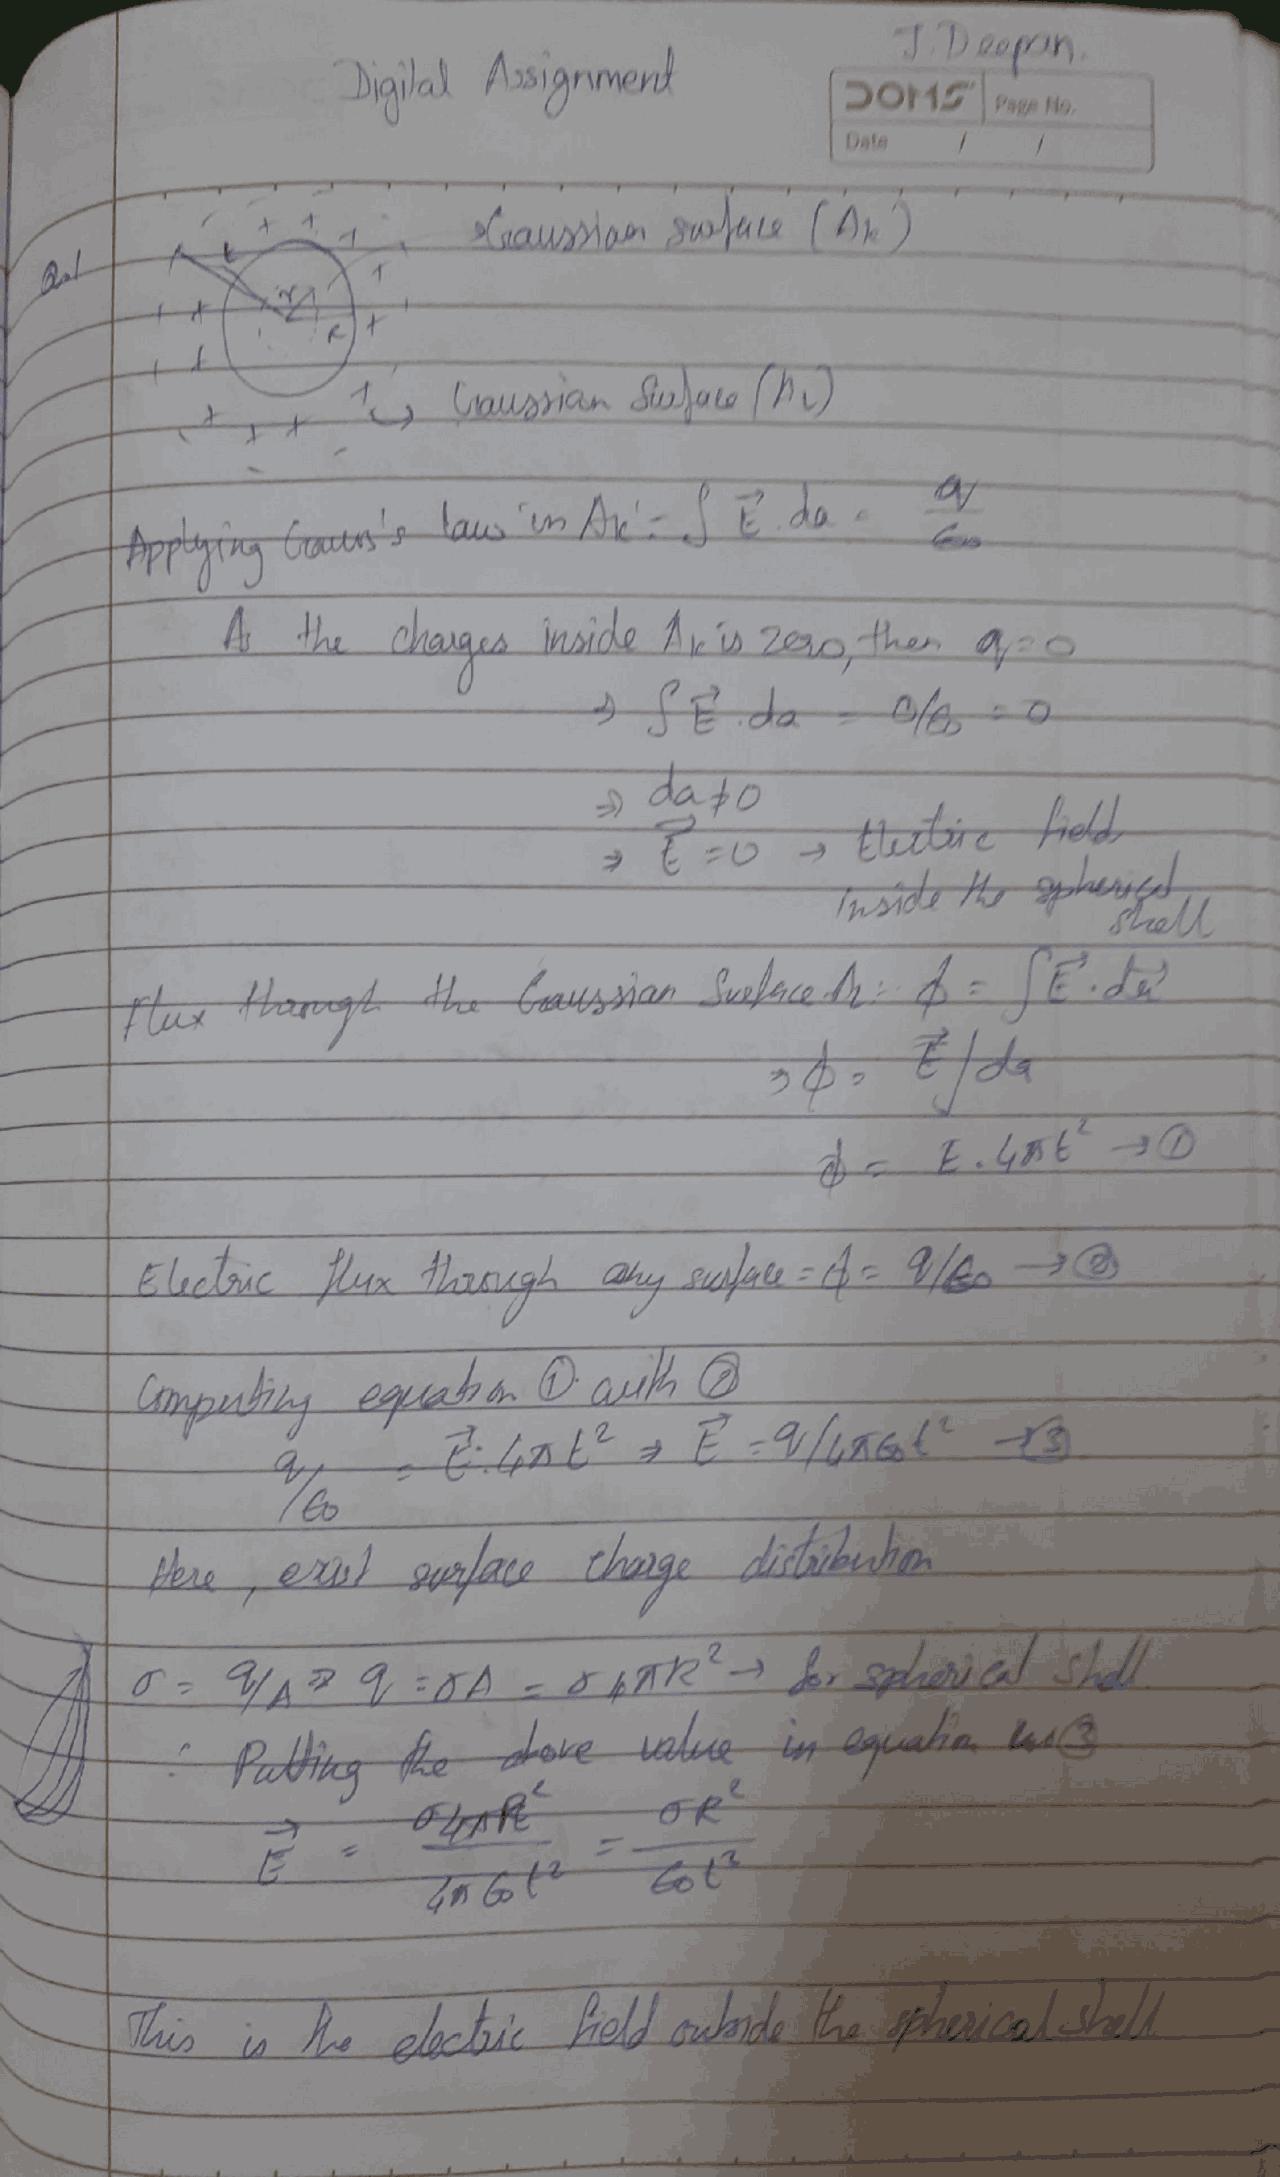 J. Deepan.
Digital Assignment
DOMS Page No.
Date / /
Gaussian Surface (Ak)
t
r
R
Gaussian Surface
Applying Gauss's law in Ak = ∫ E⃗ . da = q/ϵo
As the charges inside Ak is zero, then q=0
⇒ ∫ E⃗ . da = 0/ϵo = 0
⇒ da ≠ 0
⇒ E⃗ = 0 → Electric field
inside the spherical
shell
Flux through the Gaussian Surface : ϕ = ∫ E⃗ . da⃗
⇒ ϕ = E⃗ ∫ da
ϕ = E . 4πt² → ①
Electric flux through any surface = ϕ = q/ϵo → ②
Computing equation ① with ②
q/ϵo = E⃗ . 4πt² ⇒ E⃗ = q/4πϵot² → ③
Here, exist surface charge distribution
σ = q/A ⇒ q = σA = σ4πR² → for spherical shell
∴ Putting the above value in equation ③
E⃗ = σ4πR²/4πϵot² = σR²/ϵot²
This is the electric field outside the spherical shell